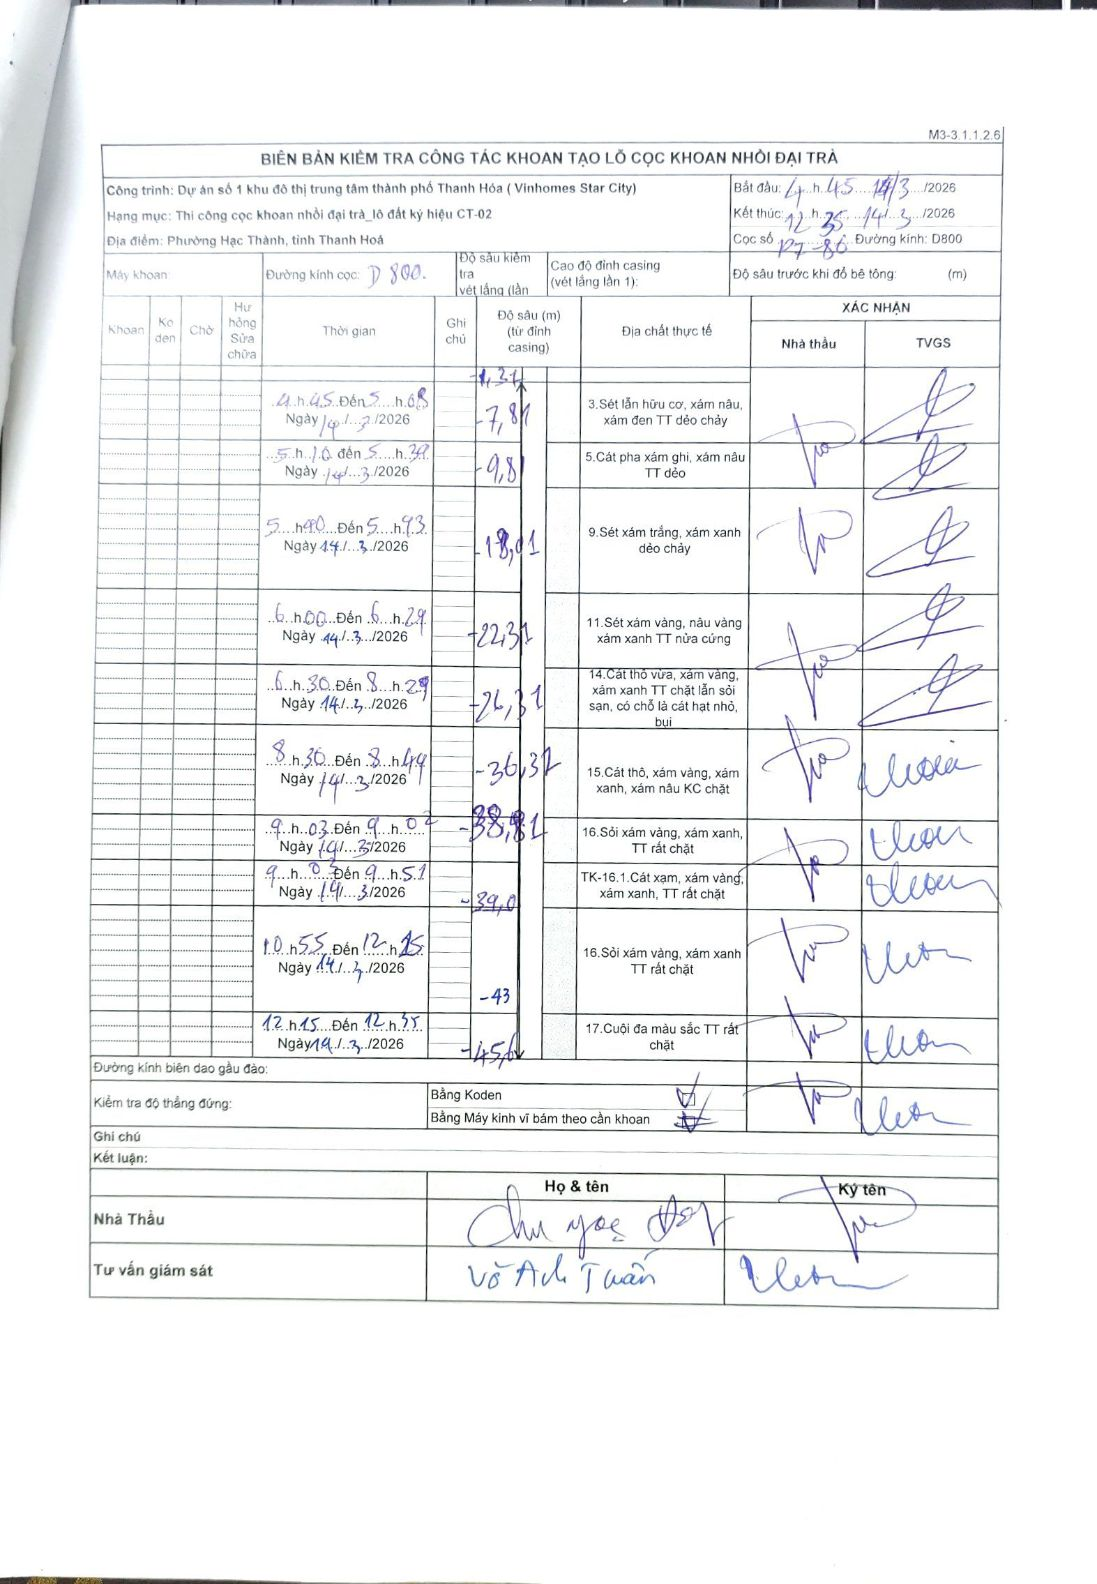 M3-3.1.1.2.6
BIÊN BẢN KIỂM TRA CÔNG TÁC KHOAN TẠO LỖ CỌC KHOAN NHỒI ĐẠI TRÀ
Công trình: Dự án số 1 khu đô thị trung tâm thành phố Thanh Hóa ( Vinhomes Star City)
Bắt đầu: 4 h 45 14/3 /2026
Hạng mục: Thi công cọc khoan nhồi đại trà_lô đất ký hiệu CT-02
Kết thúc: 12 h 35 14/3 /2026
Địa điểm: Phường Hạc Thành, tỉnh Thanh Hoá
Cọc số P7-86 Đường kính: D800
Máy khoan:
Đường kính cọc: D 800.
Độ sâu kiểm
tra
vét lắng (lần
Cao độ đỉnh casing
(vét lắng lần 1):
Độ sâu trước khi đổ bê tông: (m)
Khoan
Ko
den
Chờ
Hư
hỏng
Sửa
chữa
Thời gian
Ghi
chú
Độ sâu (m)
(từ đỉnh
casing)
Địa chất thực tế
XÁC NHẬN
Nhà thầu
TVGS
-1,31
4 h 45 Đến 5 h 08
Ngày 14/3/2026
-7,81
3.Sét lẫn hữu cơ, xám nâu,
xám đen TT dẻo chảy
5 h 10 đến 5 h 39
Ngày 14/3/2026
-9,81
5.Cát pha xám ghi, xám nâu
TT dẻo
5 h 40 Đến 5 h 43
Ngày 14/3/2026
-18,01
9.Sét xám trắng, xám xanh
dẻo chảy
6 h 00 Đến 6 h 29
Ngày 14/3/2026
-22,31
11.Sét xám vàng, nâu vàng
xám xanh TT nửa cứng
6 h 30 Đến 8 h 29
Ngày 14/3/2026
-26,31
14.Cát thô vừa, xám vàng,
xám xanh TT chặt lẫn sỏi
sạn, có chỗ là cát hạt nhỏ,
bụi
8 h 30 Đến 8 h 44
Ngày 14/3/2026
-36,31
15.Cát thô, xám vàng, xám
xanh, xám nâu KC chặt
9 h 03 Đến 9 h 02
Ngày 14/3/2026
-38,81
16.Sỏi xám vàng, xám xanh,
TT rất chặt
9 h 03 Đến 9 h 51
Ngày 14/3/2026
-39,0
TK-16.1.Cát xạm, xám vàng,
xám xanh, TT rất chặt
10 h 55 Đến 12 h 15
Ngày 14/3/2026
-43
16.Sỏi xám vàng, xám xanh
TT rất chặt
12 h 15 Đến 12 h 35
Ngày 14/3/2026
-45,6
17.Cuội đa màu sắc TT rất
chặt
Đường kính biên dao gầu đào:
Kiểm tra độ thẳng đứng:
Bằng Koden
Bằng Máy kinh vĩ bám theo cần khoan
Ghi chú
Kết luận:
Họ & tên
Ký tên
Nhà Thầu
Tư vấn giám sát
Võ Anh Tuấn